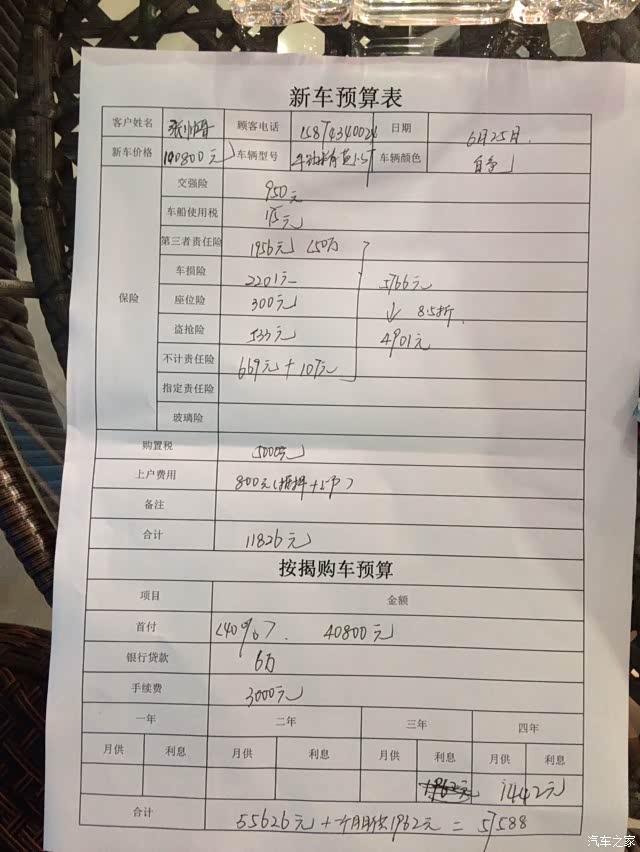 新车预算表
客户姓名 顾客电话 日期 6月25日
新车价格 100800元 车辆型号 1.5T 车辆颜色 白色
保险
交强险 950元
车船使用税
第三者责任险 1956元 (50万)
车损险 2201元 5766元
座位险 300元 ↓ 85折
盗抢险 533元 4901元
不计责任险 669元 + 107元
指定责任险
玻璃险
购置税 5000元
上户费用 800元(抵押+上户)
备注
合计 11826元
按揭购车预算
项目 金额
首付 (40%) 40800元
银行贷款 6万
手续费 3000元
一年 二年 三年 四年
月供 利息 月供 利息 月供 利息 月供 利息
1442元
合计 55626元 + 一个月月供1962元 = 57588
汽车之家